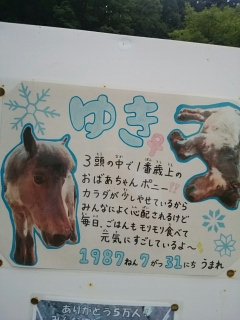 ゆき
3頭の中で1番歳上の
おばあちゃんポニー!!
カラダが少しやせているから
みんなによく心配されるけど
毎日、ごはんもモリモリ食べて
元気にすごしているよ〜
1987ねん7がつ31にちうまれ
ありがとう5万人